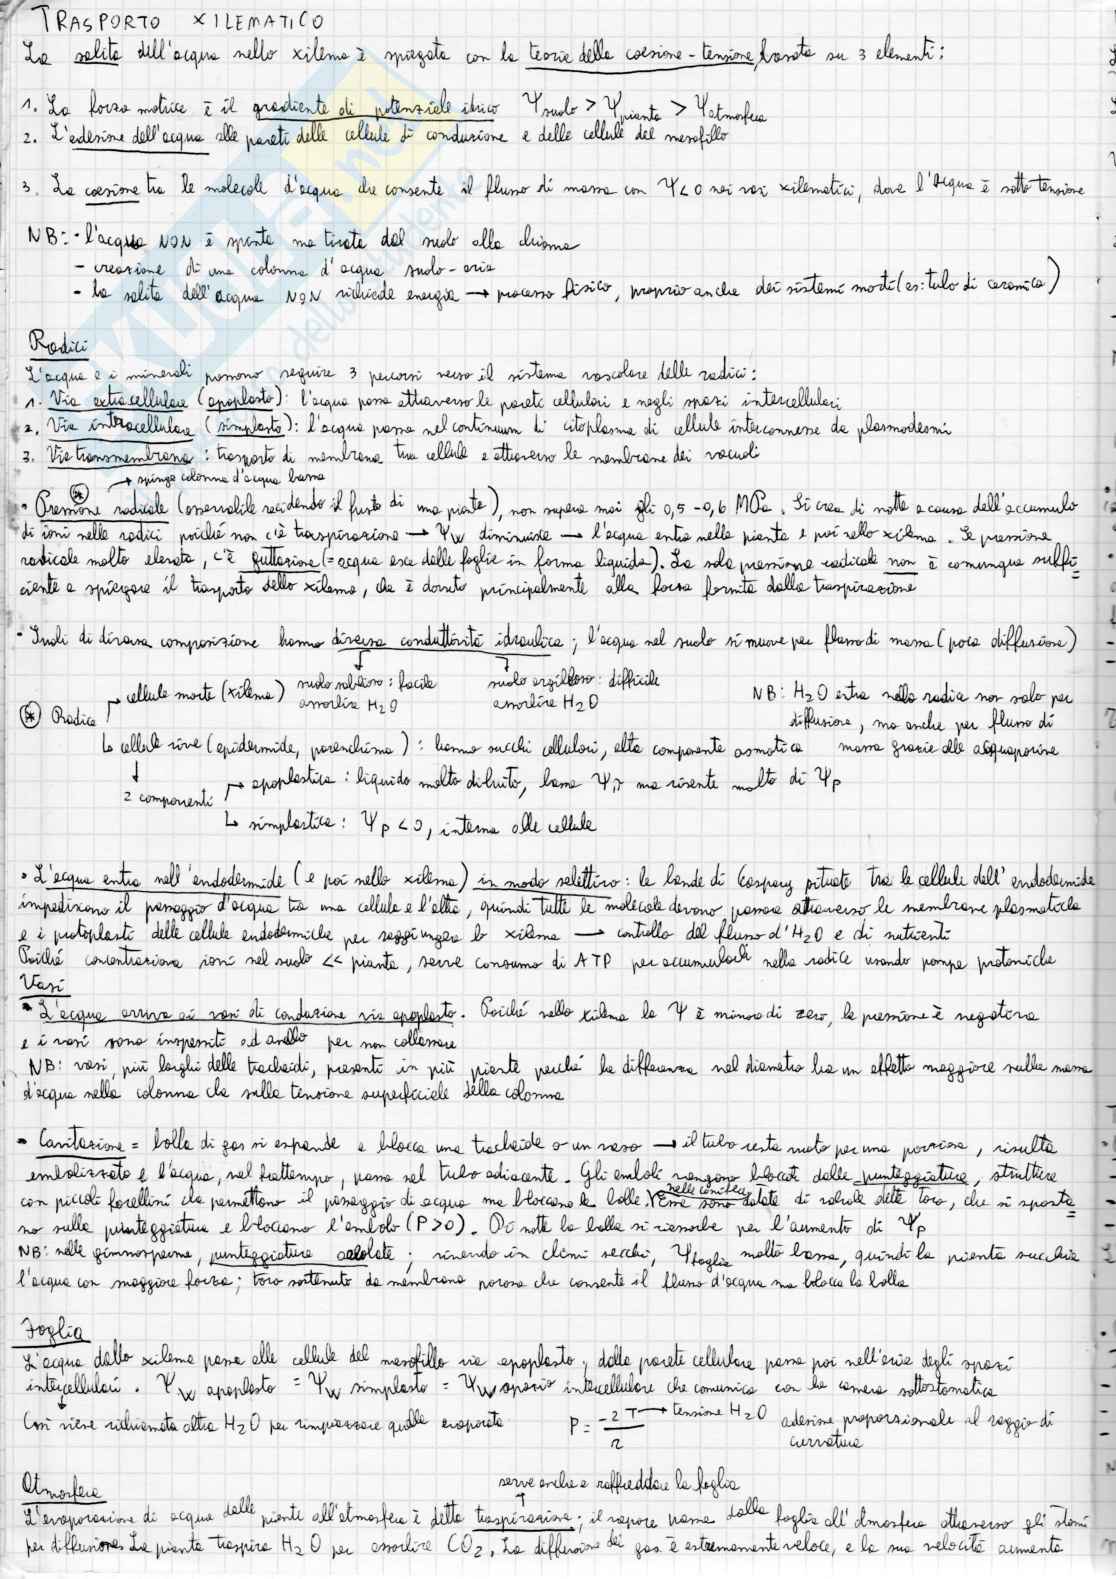 TRASPORTO XILEMATICO
La salita dell'acqua nello xilema è spiegata con la teoria della coesione-tensione, basata su 3 elementi:
1. La forza motrice è il gradiente di potenziale idrico Ψsuolo > Ψpianta > Ψatmosfera
2. L'adesione dell'acqua alle pareti delle cellule di conduzione e delle cellule del mesofillo
3. La coesione tra le molecole d'acqua che consente il flusso di massa con Ψ<0 nei vasi xilematici, dove l'acqua è sotto tensione
NB: - l'acqua NON è spinta ma tirata dal suolo alla chioma
- creazione di una colonna d'acqua suolo-aria
- la salita dell'acqua NON richiede energia → processo fisico, proprio anche dei sistemi morti (es: tubo di ceramica)
Radici
L'acqua e i minerali possono seguire 3 percorsi verso il sistema vascolare delle radici:
1. Via extracellulare (apoplasto): l'acqua passa attraverso le pareti cellulari e negli spazi intercellulari
2. Via intracellulare (simplasto): l'acqua passa nel continuum di citoplasma di cellule interconnesse da plasmodesmi
3. Via transmembrana: trasporto di membrana tra cellule e attraverso le membrane dei vacuoli
→ spinge colonna d'acqua bassa
• Pressione radicale (osservabile recidendo il fusto di una pianta), non supera mai gli 0,5-0,6 MPa. Si crea di notte a causa dell'accumulo
di ioni nelle radici poiché non c'è traspirazione → Ψw diminuisce → l'acqua entra nella pianta e poi nello xilema. Se pressione
radicale molto elevata, c'è guttazione (= acqua esce dalle foglie in forma liquida). La sola pressione radicale non è comunque suffi=
ciente a spiegare il trasporto dello xilema, che è dovuto principalmente alla forza fornita dalla traspirazione
• Suoli di diversa composizione hanno diversa conduttività idraulica; l'acqua nel suolo si muove per flusso di massa (poca diffusione)
suolo sabbioso: facile assorbire H2O
suolo argilloso: difficile assorbire H2O
NB: H2O entra nella radice non solo per
diffusione, ma anche per flusso di
massa grazie alle acquaporine
* Radice → cellule morte (xilema)
↳ cellule vive (epidermide, parenchima): hanno succhi cellulari, alta componente osmotica
↓
2 componenti → apoplastica: liquido molto diluito, bassa Ψπ ma risente molto di ΨP
↳ simplastica: ΨP < 0, interna alle cellule
• L'acqua entra nell'endodermide (e poi nello xilema) in modo selettivo: le bande di Caspary situate tra le cellule dell'endodermide
impediscono il passaggio d'acqua tra una cellula e l'altra, quindi tutte le molecole devono passare attraverso le membrane plasmatiche
e i protoplasti delle cellule endodermiche per raggiungere lo xilema → controllo del flusso d'H2O e di nutrienti
Poiché concentrazione ioni nel suolo << pianta, serve consumo di ATP per accumularli nella radice usando pompe protoniche
Vasi
• L'acqua arriva ai vasi di conduzione via apoplasto. Poiché nello xilema la Ψ è minore di zero, la pressione è negativa
e i vasi sono inspessiti ad anello per non collassare
NB: vasi, più larghi delle tracheidi, presenti in più piante perché la differenza nel diametro ha un effetto maggiore sulla massa
d'acqua nella colonna che sulla tensione superficiale della colonna
• Cavitazione = bolla di gas si espande e blocca una tracheide o un vaso → il tubo resta vuoto per una porzione, risulta
embolizzato e l'acqua, nel frattempo, passa nel tubo adiacente. Gli emboli vengono bloccati dalle punteggiature, strutture
con piccoli forellini che permettono il passaggio di acqua ma bloccano le bolle. nelle conifere Esse sono dotate di valvole dette toro, che si sposta=
no sulla punteggiatura e bloccano l'embolo (P>0). Di notte la bolla si riassorbe per l'aumento di ΨP
NB: nelle gimnosperme, punteggiature areolate; vivendo in climi secchi, Ψfoglia molto bassa, quindi la pianta succhia
l'acqua con maggiore forza; toro sostenuto da membrana porosa che consente il flusso d'acqua ma blocca la bolla
Foglia
L'acqua dallo xilema passa alle cellule del mesofillo via apoplasto; dalla parete cellulare passa poi nell'aria degli spazi
intercellulari. Ψw apoplasto = Ψw simplasto = Ψw spazio intercellulare che comunica con la camera sottostomatica
Così viene richiamata altra H2O per rimpiazzare quella evaporata P = -2T/r → tensione H2O adesione proporzionale al raggio di
curvatura
Atmosfera
serve anche a raffreddare la foglia
L'evaporazione di acqua dalle piante all'atmosfera è detta traspirazione; il vapore passa dalla foglia all'atmosfera attraverso gli stomi
per diffusione. La pianta traspira H2O per assorbire CO2. La diffusione dei gas è estremamente veloce, e la sua velocità aumenta